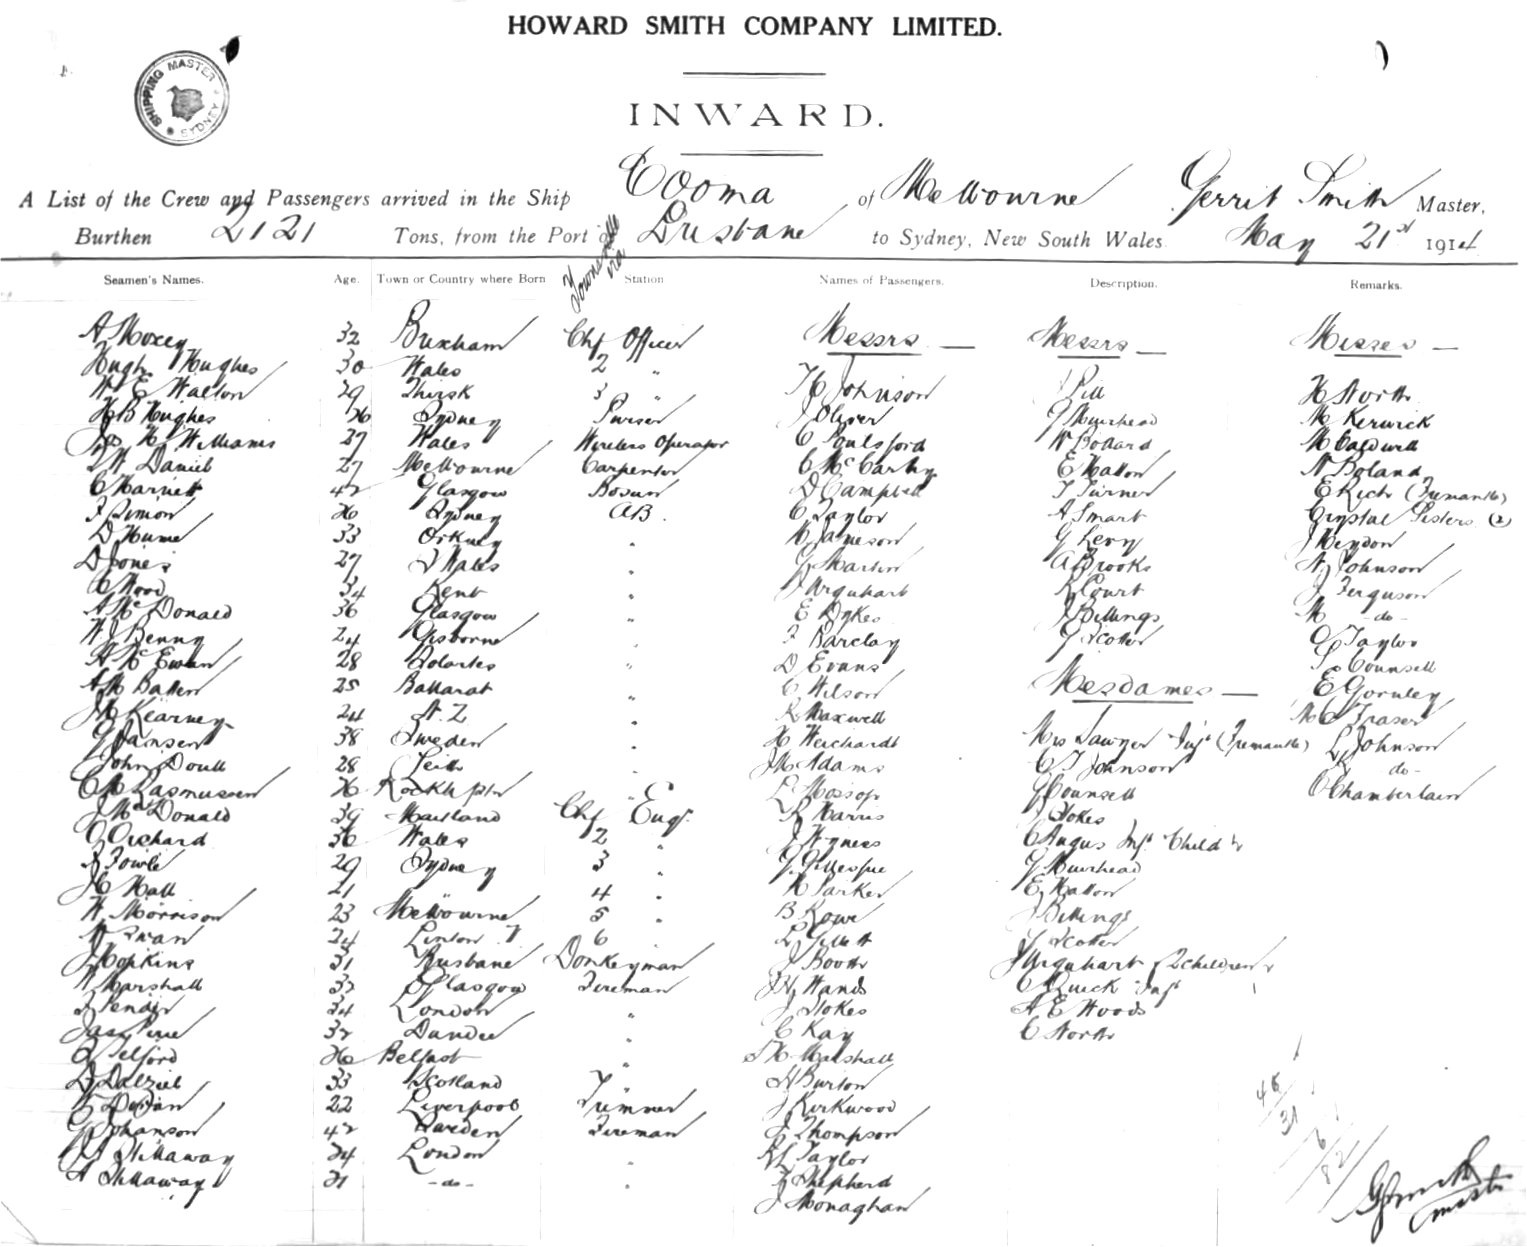 HOWARD SMITH COMPANY LIMITED.
SHIPPING MASTER SYDNEY
INWARD.
A List of the Crew and Passengers arrived in the Ship Cooma of Melbourne Gerrit Smith Master,
Burthen 2121 Tons, from the Port of Townsville via Brisbane to Sydney, New South Wales. May 21st 1914
Seamen's Names. Age. Town or Country where Born Station Names of Passengers. Description. Remarks.
A Moxey 32 Brixham Chf Officer Messrs — Messrs — Misses —
Hugh Hughes 30 Wales 2 "
W E Walton 29 Thirsk 3 " H Johnson J Pill H North
H B Hughes 26 Sydney Purser J Oliver G Muirhead M Kerwick
H Williams 27 Wales Wireless Operator C Poulsford W Bollard M Caldwell
W Daniel 27 Melbourne Carpenter C McCarthy E Hatton N Boland
C Harnett 42 Glasgow Bosun D Campbell T Turner E Rich (Fremantle)
J Simon 26 Sydney AB. C Taylor A Smart Crystal Sisters (2)
D Hume 33 Orkney " H Jameson G Levy J Heydon
D Jones 27 S Wales " G Martin A Brooks A Johnson
C Wood 34 Kent " J Urquhart R Court J Ferguson
A McDonald 36 Glasgow " E Dykes J Billings M -do-
W J Benny 24 Gisborne " J Barclay G Scotter C Taylor
A McEwan 28 " D Evans L Counsell
A M Batten 25 Ballarat " C Wilson Mesdames — E Gormley
J M Kearney 24 N.Z " R Maxwell M C Fraser
G Jansen 38 Sweden " H Weichardt Mrs Sawyer Inft (Fremantle) L Johnson
John Doull 28 Leith " J M Adams C T Johnson -do-
C M Rasmussen 26 Rockhptn " L Mossop J Counsell C Chamberlain
J McDonald 39 Maitland Chf Engr. R Harris J Stokes
G Orchard 36 Wales 2 " J Hyness C Angus Inft Child
J Fowle 29 Sydney 3 " G Gillespie G Muirhead
J C Hall 21 " 4 " H Parker E Hatton
W Morrison 23 Melbourne 5 " B Rowe J Billings
W Swan 24 Linton V 6 " L Gillett G Scotter
J Hopkins 31 Brisbane Donkeyman J Booth J Urquhart 2 children
W Marshall 32 Glasgow Fireman J H Hands C Quick Inft
J Pender 34 London " J Stokes A E Woods
Jas Pirie 32 Dundee " C Kay C North
J Telford 26 Belfast " H Marshall
D Dalziel 33 Scotland " H Burton
22 Liverpool Trimmer J Kirkwood
G Johanson 42 Sweden Fireman J Thompson
Stillaway 24 London " R L Taylor
A Stillaway 21 -do- " J Shepherd
J Monaghan
48
31
82
G Smith
Master